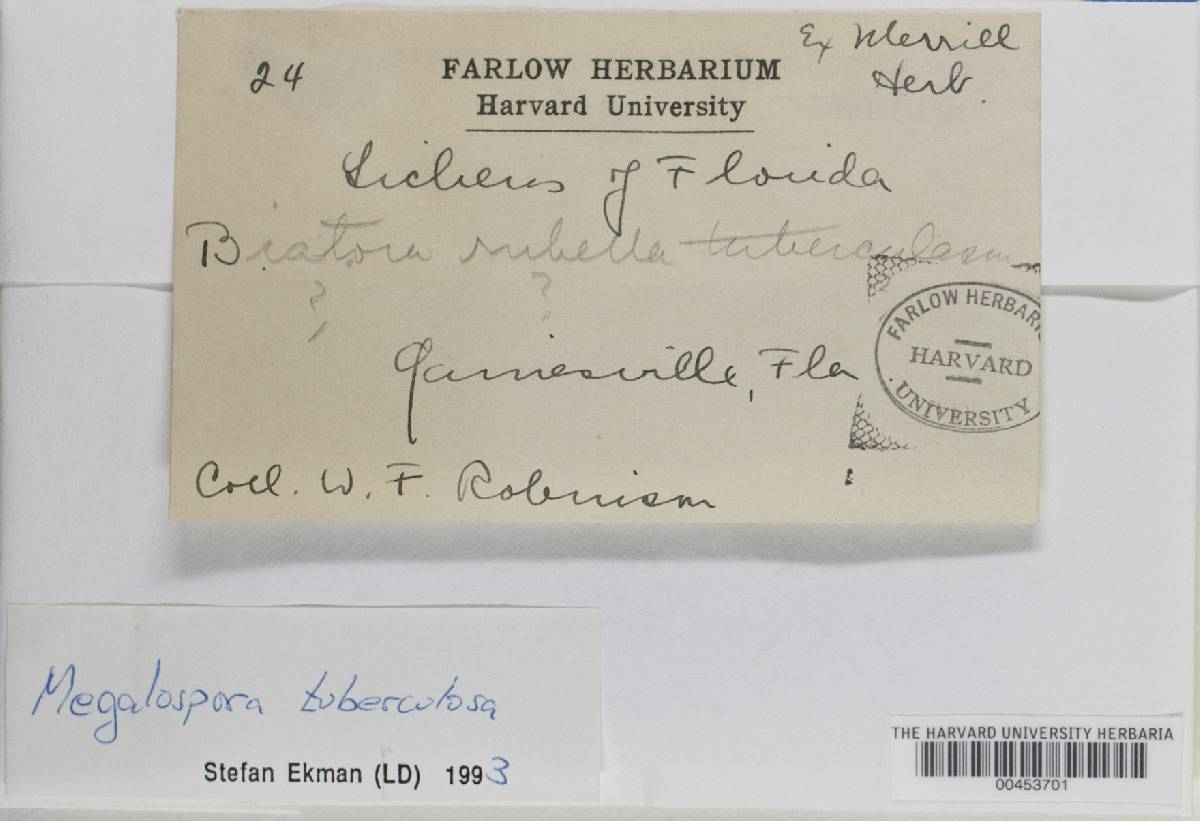 24
Ex Merrill
Herb.
FARLOW HERBARIUM
Harvard University
Lichens of Florida
Biatora rubella tuberculosa
? ?
Gainesville, Fla
FARLOW HERBARI
HARVARD
UNIVERSITY
Coll. W. F. Robinson
Megalospora tuberculosa
Stefan Ekman (LD) 1993
THE HARVARD UNIVERSITY HERBARIA
00453701